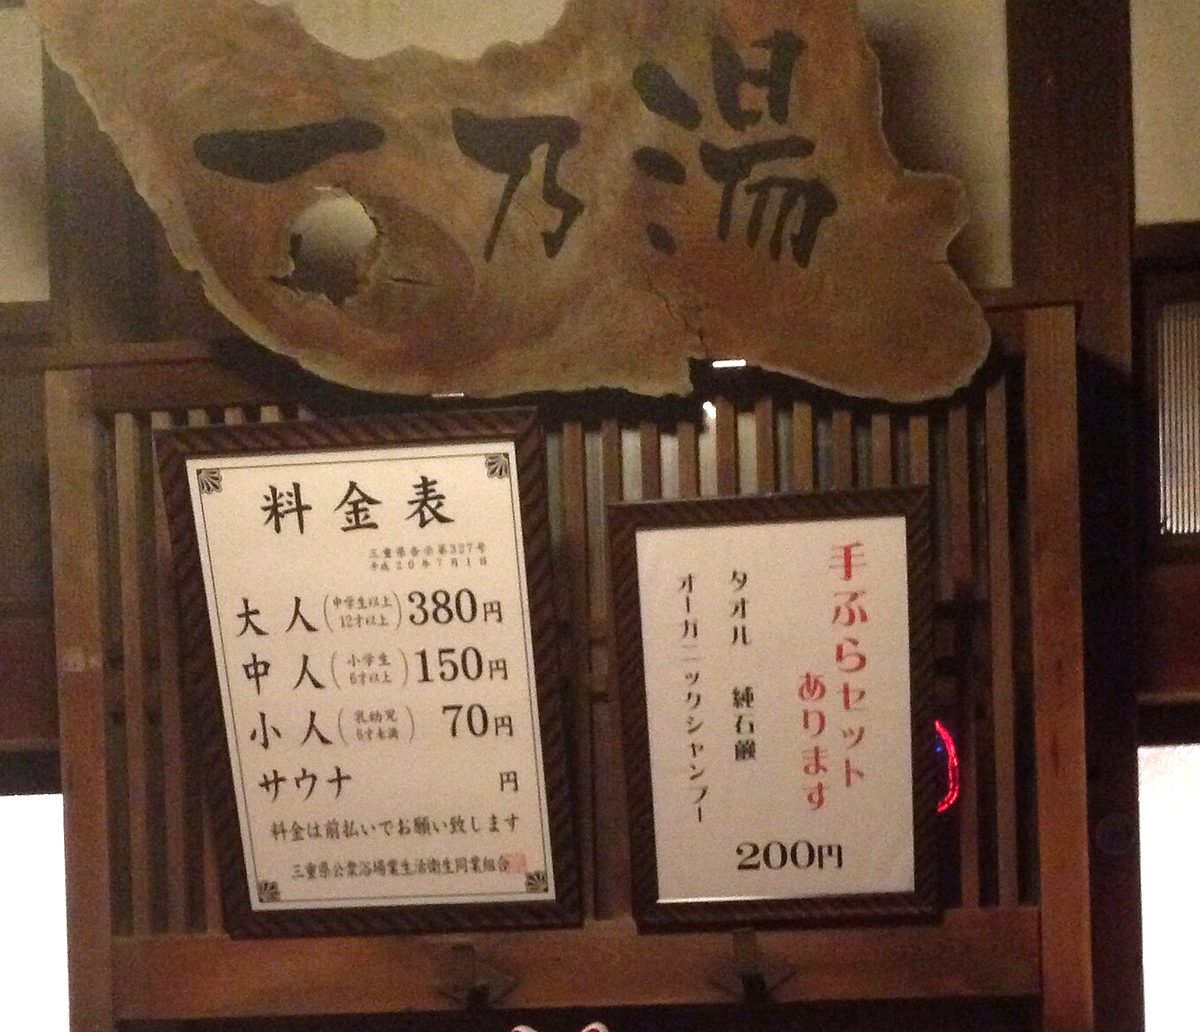 一乃湯
料金表
三重県告示第327号
平成20年7月1日
大人(中学生以上 12才以上)380円
中人(小学生 6才以上)150円
小人(乳幼児 6才未満)70円
サウナ 円
料金は前払いでお願い致します
三重県公衆浴場業生活衛生同業組合
手ぶらセット
あります
タオル 純石鹸
オーガニックシャンプー
200円